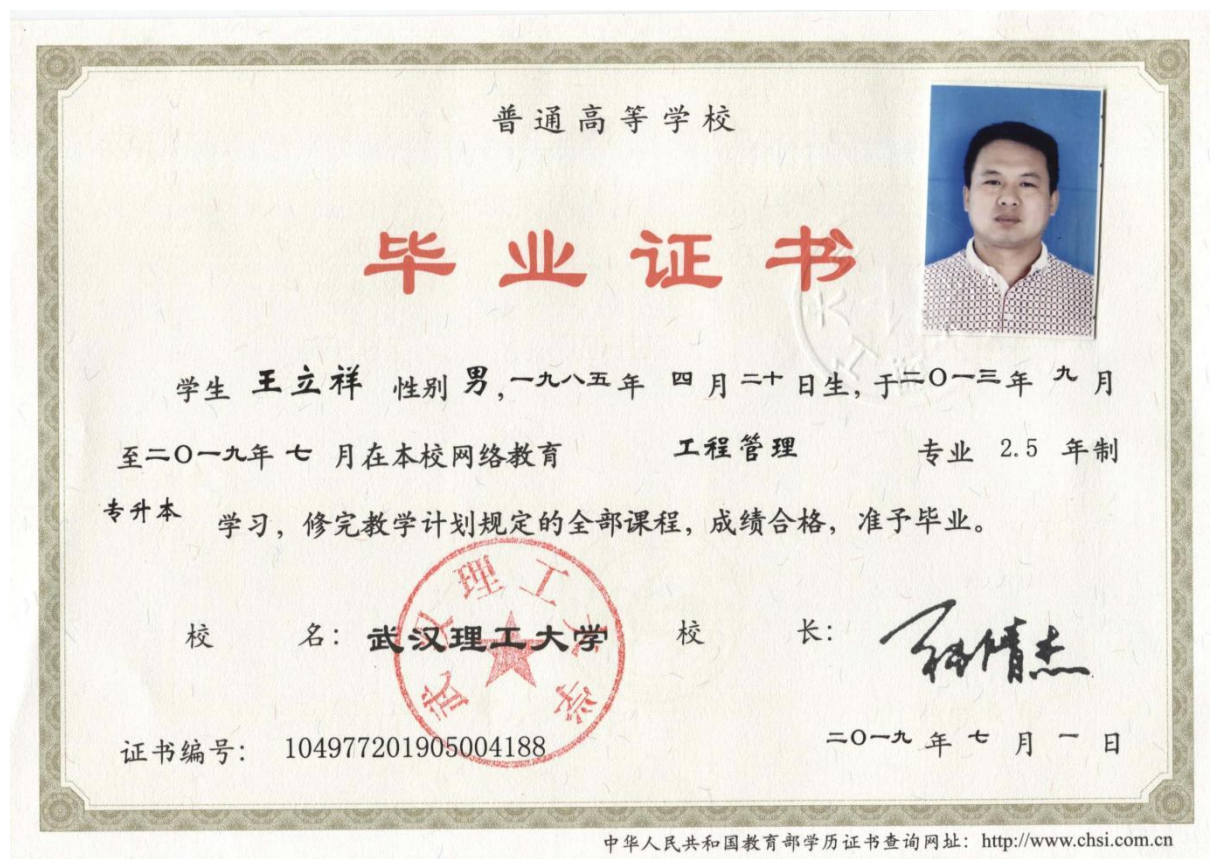 普通高等学校
毕业证书
学生 王立祥 性别 男，一九八五年 四月二十日生，于二〇一三年 九月
至二〇一九年 七 月在本校网络教育 工程管理 专业 2.5 年制
专升本 学习，修完教学计划规定的全部课程，成绩合格，准予毕业。
校 名：武汉理工大学 校 长：
武汉理工大学
证书编号： 104977201905004188 二〇一九 年 七 月 一 日
中华人民共和国教育部学历证书查询网址：http://www.chsi.com.cn